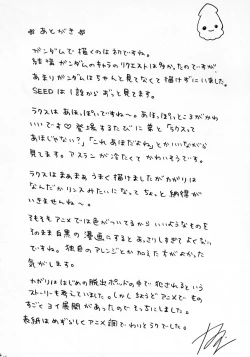 * あとがき *
ガンダムで描くのは初ですね。
結構ガンダムのキャラのリクエストは多かったのですが、
あまりガンダムはちゃんと見てなくて描けずにいました。
SEEDは1話からずっと見てます。
ラクスはあほっぽいですね〜。あほっぽいところがかわ
いいです♡登場するたびに弟と「ラクスって
あほじゃない?」「これあほだよね」とかいいながら
見てます。アスランが冷たくてかわいそうです。
ラクスはまぁまぁうまく描けましたがカガリは
なんだかリンスみたいになってちょっと納得が
いきませんね〜。
そもそもアニメでは色がついてるからいいようなものを
そのまま白黒の漫画にすると、あっさりしすぎてよくない
ですね。独自のアレンジとか加えた方がよかった
気がします。
カガリははじめの脱出ポッドの中で犯されるという
ストーリーも考えていました。しかしちょうどアニメでも
すごくヨイ展開があったのでこっちにしました。
表紙はめずらしくアニメ調でわりとうりでした。